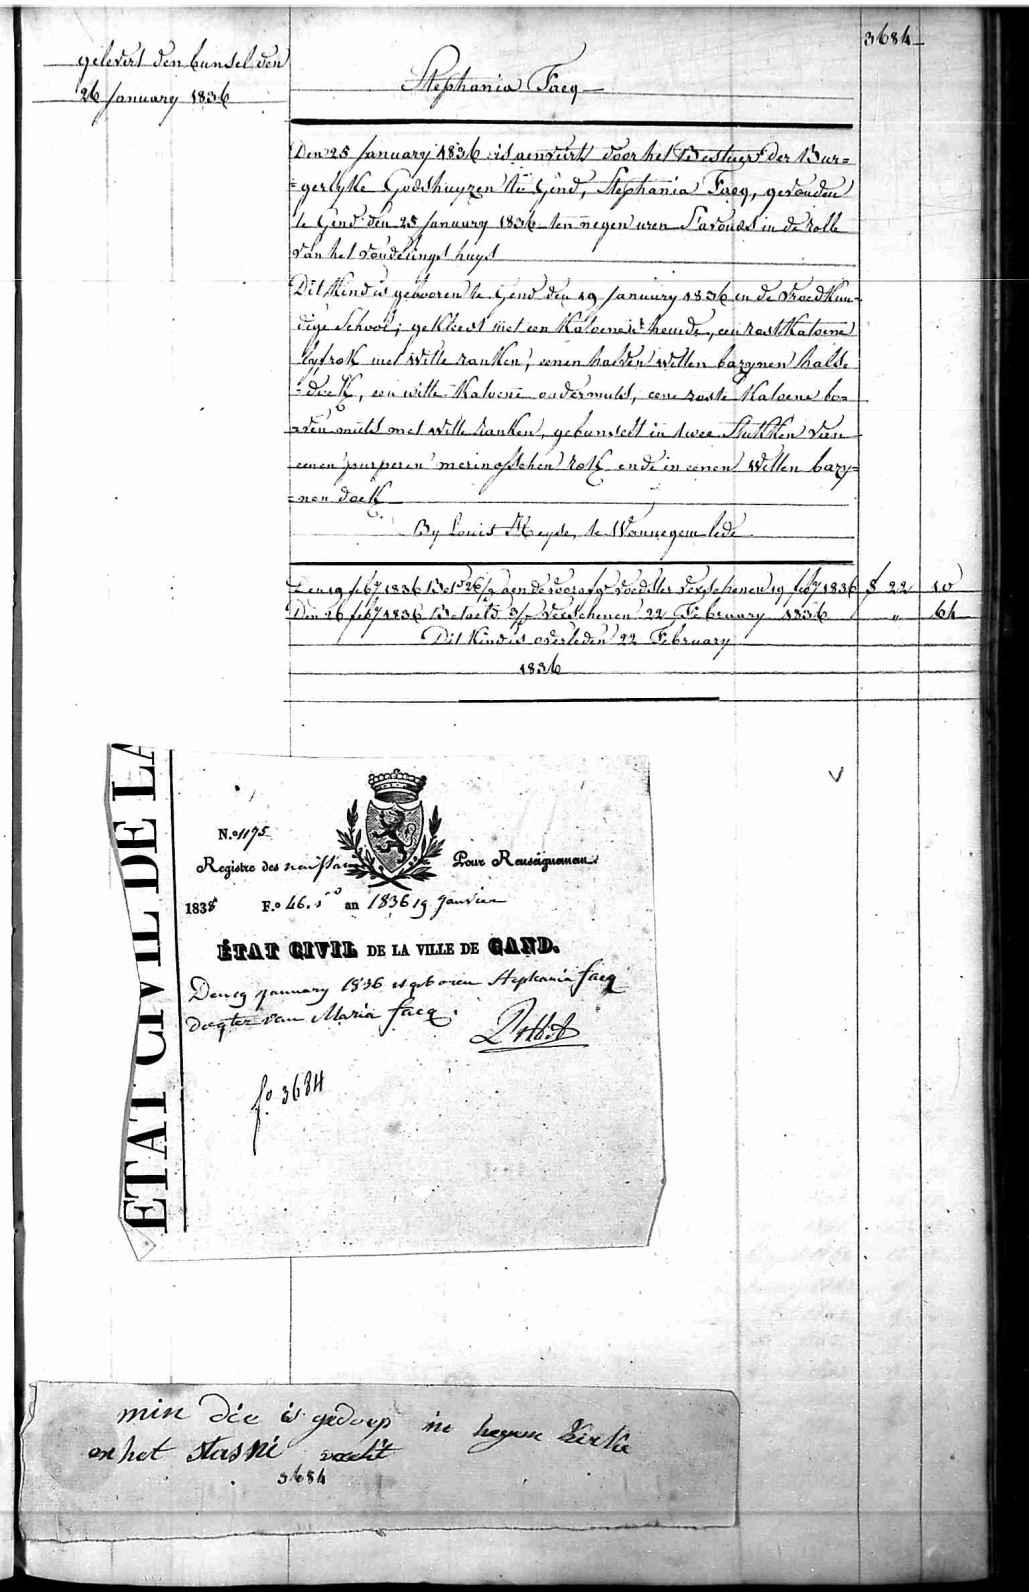 3684
gelevert den bunsel den
26 January 1836
Stephania Facq
Den 25 January 1836 is aenveirt door het Bestuer der Bur=
=gerlyke Godshuyzen te Gend, Stephania Facq, gevonden
te Gend den 25 January 1836 ten negen uren s'avonds in de rolle
van het vondelings huys
Dit Kind is gebooren te Gend den 19 January 1836 in de Vroedkun=
dige School; gekleed met een Katoene hemde, een rost Katoene
lyfrok met witte ranken, eenen halven witten bazynen hals=
=doek, een witte Katoene ondermuts, eene roste Katoene bo=
=ven muts met witte ranken, gebunselt in twee Stukken van
eenen purperen merinosschen rok ende in eenen witten bazy=
=nen doek
By Louis Heyse, te Wannegem lede
Den 19 feby 1836 aen de voedster verschenen 19 feby 1836 f 22 10
Den 26 feby 1836 verschenen 22 February 1836 " 64
Dit Kind is overleden 22 February
1836
ÉTAT CIVIL DE LA
N.o 1195
Registre des naissan Pour Renseignemens
1835 F.o 46. v.o an 1836 19 Janvier
ÉTAT CIVIL DE LA VILLE DE GAND.
Den 19 January 1836 is geboren Stephania facq
dogter van Maria facq.
f.o 3684
min die is gedoep in heyne Kirke
en het stasni
3684